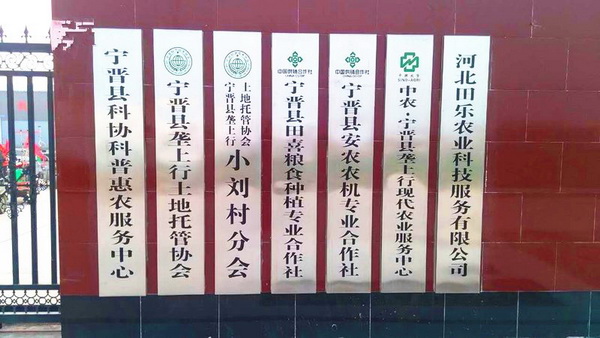 宁晋县科协科普惠农服务中心
宁晋县垄上行土地托管协会
宁晋县垄上行
土地托管协会
小刘村分会
中国供销合作社
宁晋县田喜粮食种植专业合作社
中国供销合作社
宁晋县安农农机专业合作社
中农·宁晋县垄上行现代农业服务中心
河北田乐农业科技服务有限公司